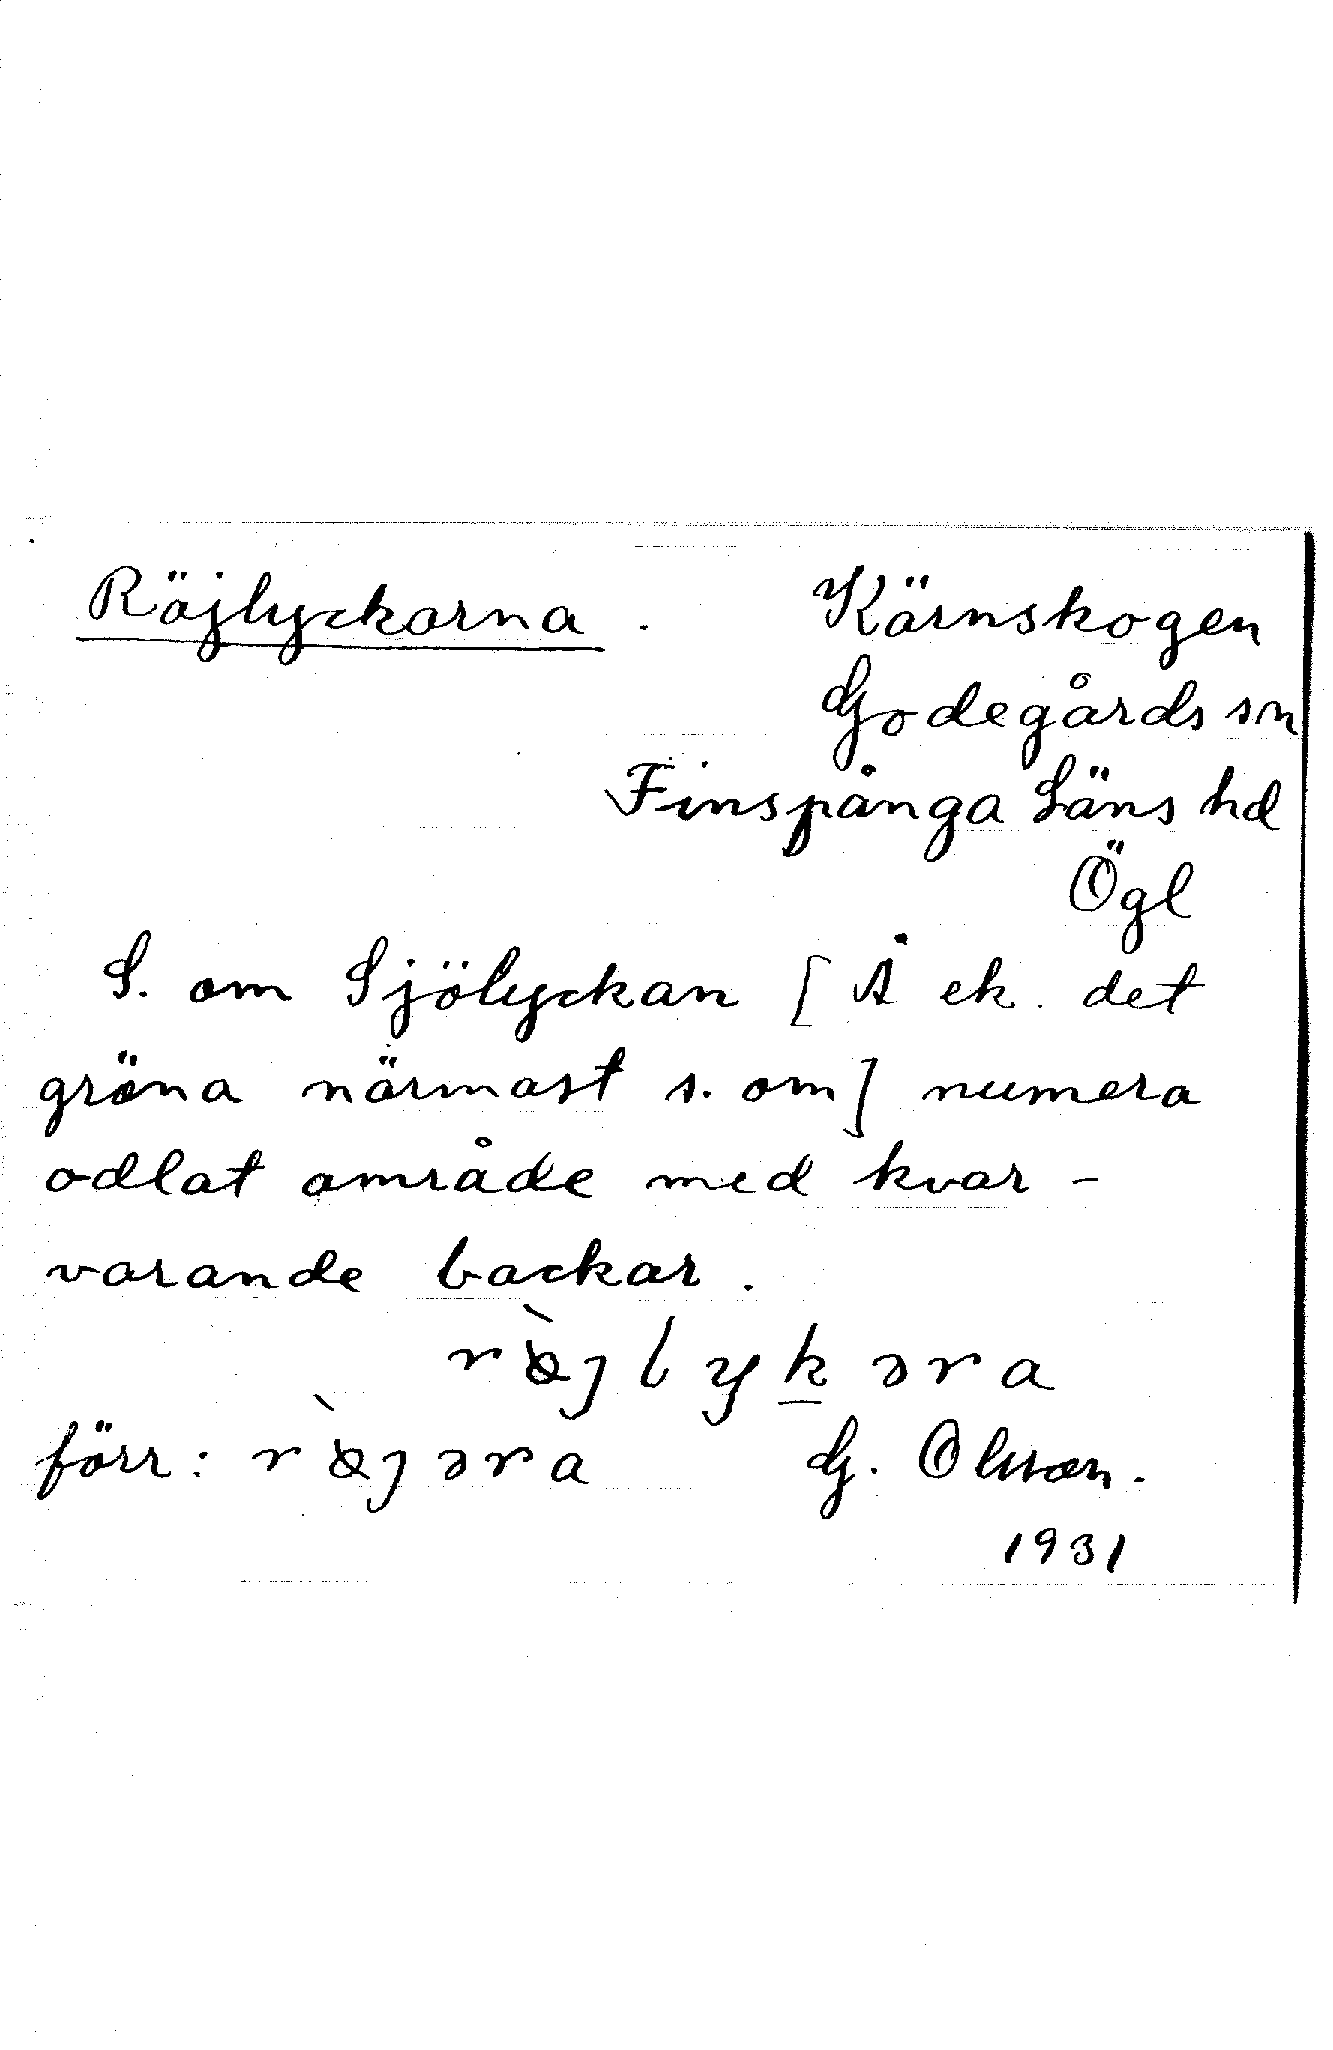 Röjlyckorna. Kärnskogen
Godegårds sn
Finspånga Läns hd
Ögl
S. om Sjölyckan [Å ek. det
gröna närmast s. om] numera
odlat område med kvar-
varande backar.
rö̀jlykəra
förr: rö̀jəra G. Olsson.
1931